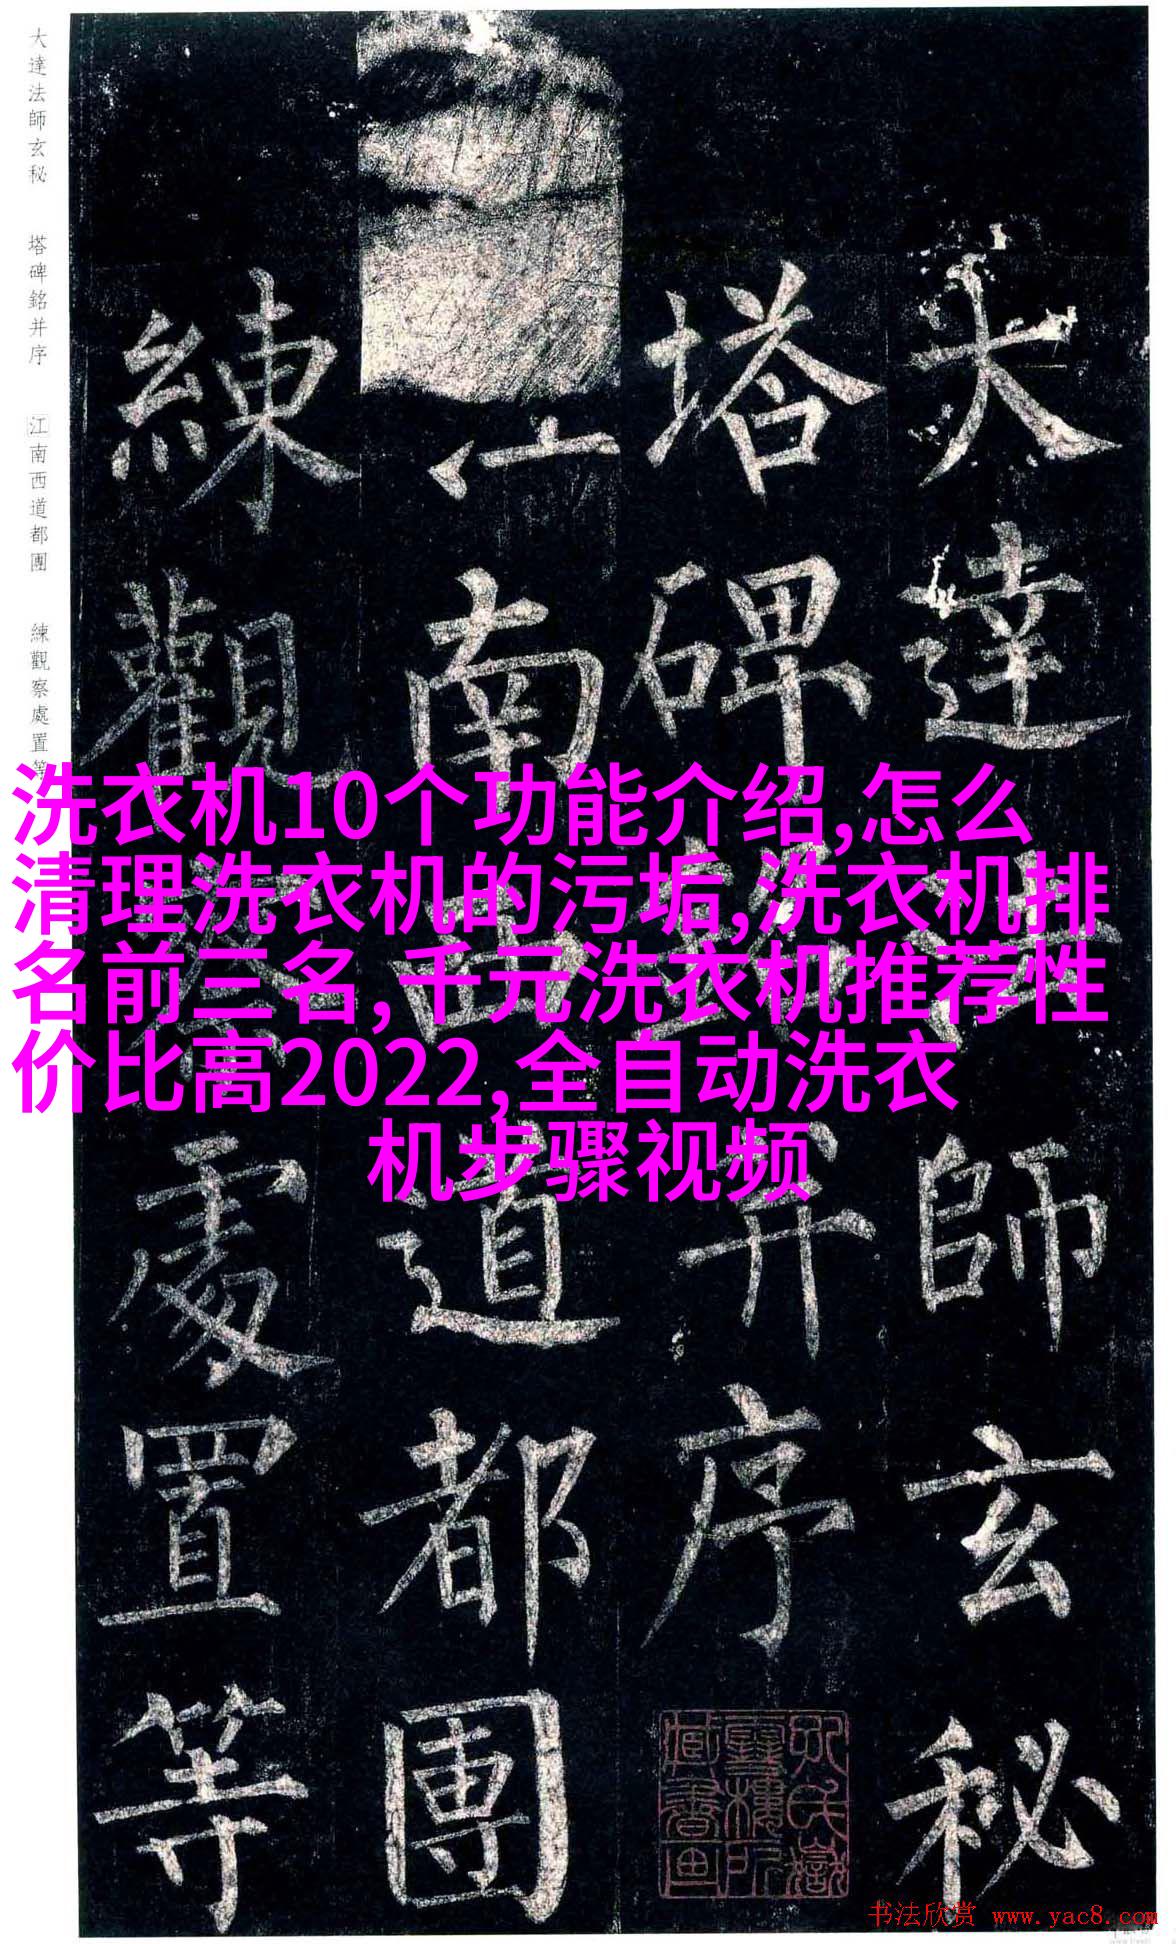 大達法師玄秘
塔碑銘并序
江南西道都團
練觀察處置等
大達法師玄秘
塔碑銘并序
江南西道都團
練觀察處置等
洗衣机10个功能介绍,怎么
清理洗衣机的污垢,洗衣机排
名前三名,千元洗衣机推荐性
价比高2022,全自动洗衣
机步骤视频
书法欣赏 www.yac8.com